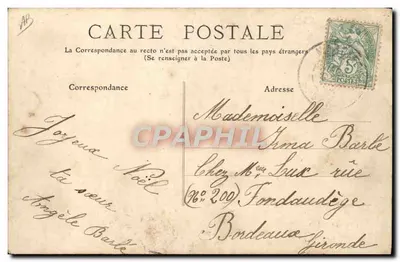 CARTE POSTALE
La Correspondance au recto n'est pas acceptée par tous les pays étrangers
(Se renseigner à la Poste)
Correspondance
Adresse
Joyeux Noël
ta sœur
Angèle Barbe
Mademoiselle
Irma Barbe
Chez Mme Lux rue
(No 200) Fondaudège
Bordeaux
Gironde
CPAPHIL